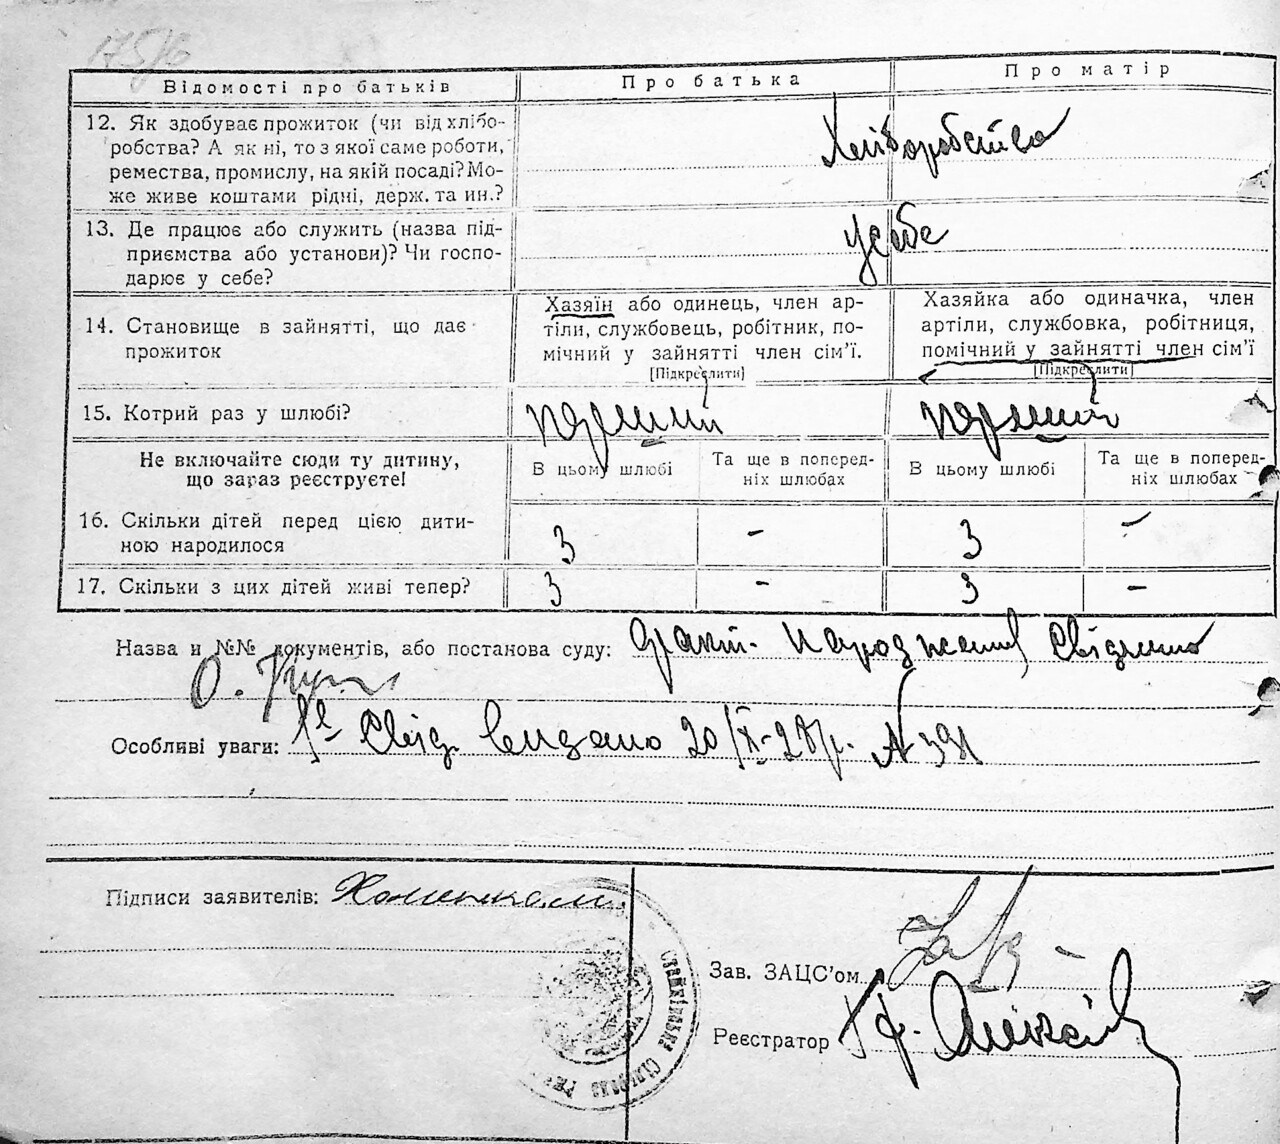 175/6
Відомості про батьків
Про батька
Про матір
12. Як здобуває прожиток (чи від хлібо-
робства? А як ні, то з якої саме роботи,
ремества, промислу, на якій посаді? Мо-
же живе коштами рідні, держ. та ин.?
Хліборобство
13. Де працює або служить (назва під-
приємства або установи)? Чи госпо-
дарює у себе?
у себе
14. Становище в зайнятті, що дає
прожиток
Хазяїн або одинець, член ар-
тіли, службовець, робітник, по-
мічний у зайнятті член сім'ї.
[Підкреслити]
Хазяйка або одиначка, член
артіли, службовка, робітниця,
помічний у зайнятті член сім'ї
[Підкреслити]
15. Котрий раз у шлюбі?
перший
перший
Не включайте сюди ту дитину,
що зараз реєструєте!
В цьому шлюбі
Та ще в поперед-
ніх шлюбах
В цьому шлюбі
Та ще в поперед-
ніх шлюбах
16. Скільки дітей перед цією дити-
ною народилося
3 - 3 -
17. Скільки з цих дітей живі тепер?
3 - 3 -
Назва и №№ документів, або постанова суду: факт народження свідчить
О.
Особливі уваги: Свід. видано 20/X-28р. N 391
Підписи заявителів:
Зав. ЗАЦС'ом
Реєстратор